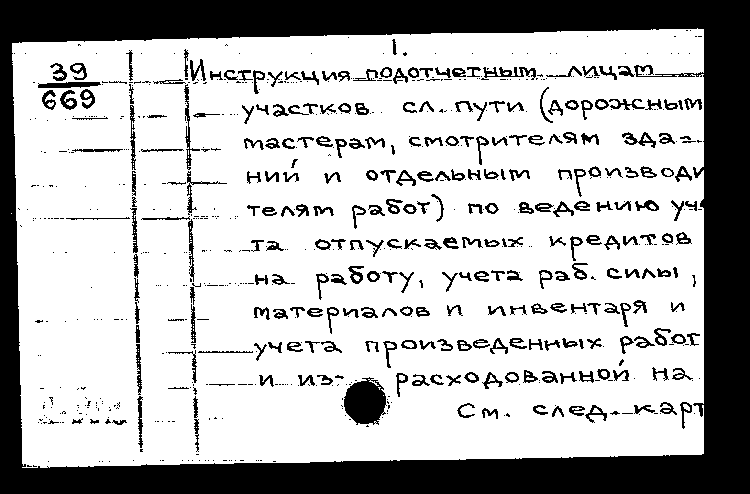 1.
39
669
Инструкция подотчетным лицам
участков сл. пути (дорожным
мастерам, смотрителям зда=
ний и отдельным производи
телям работ) по ведению уче
та отпускаемых кредитов
на работу, учета раб. силы,
материалов и инвентаря и
учета произведенных работ
и из- расходованной на
См. след. карт